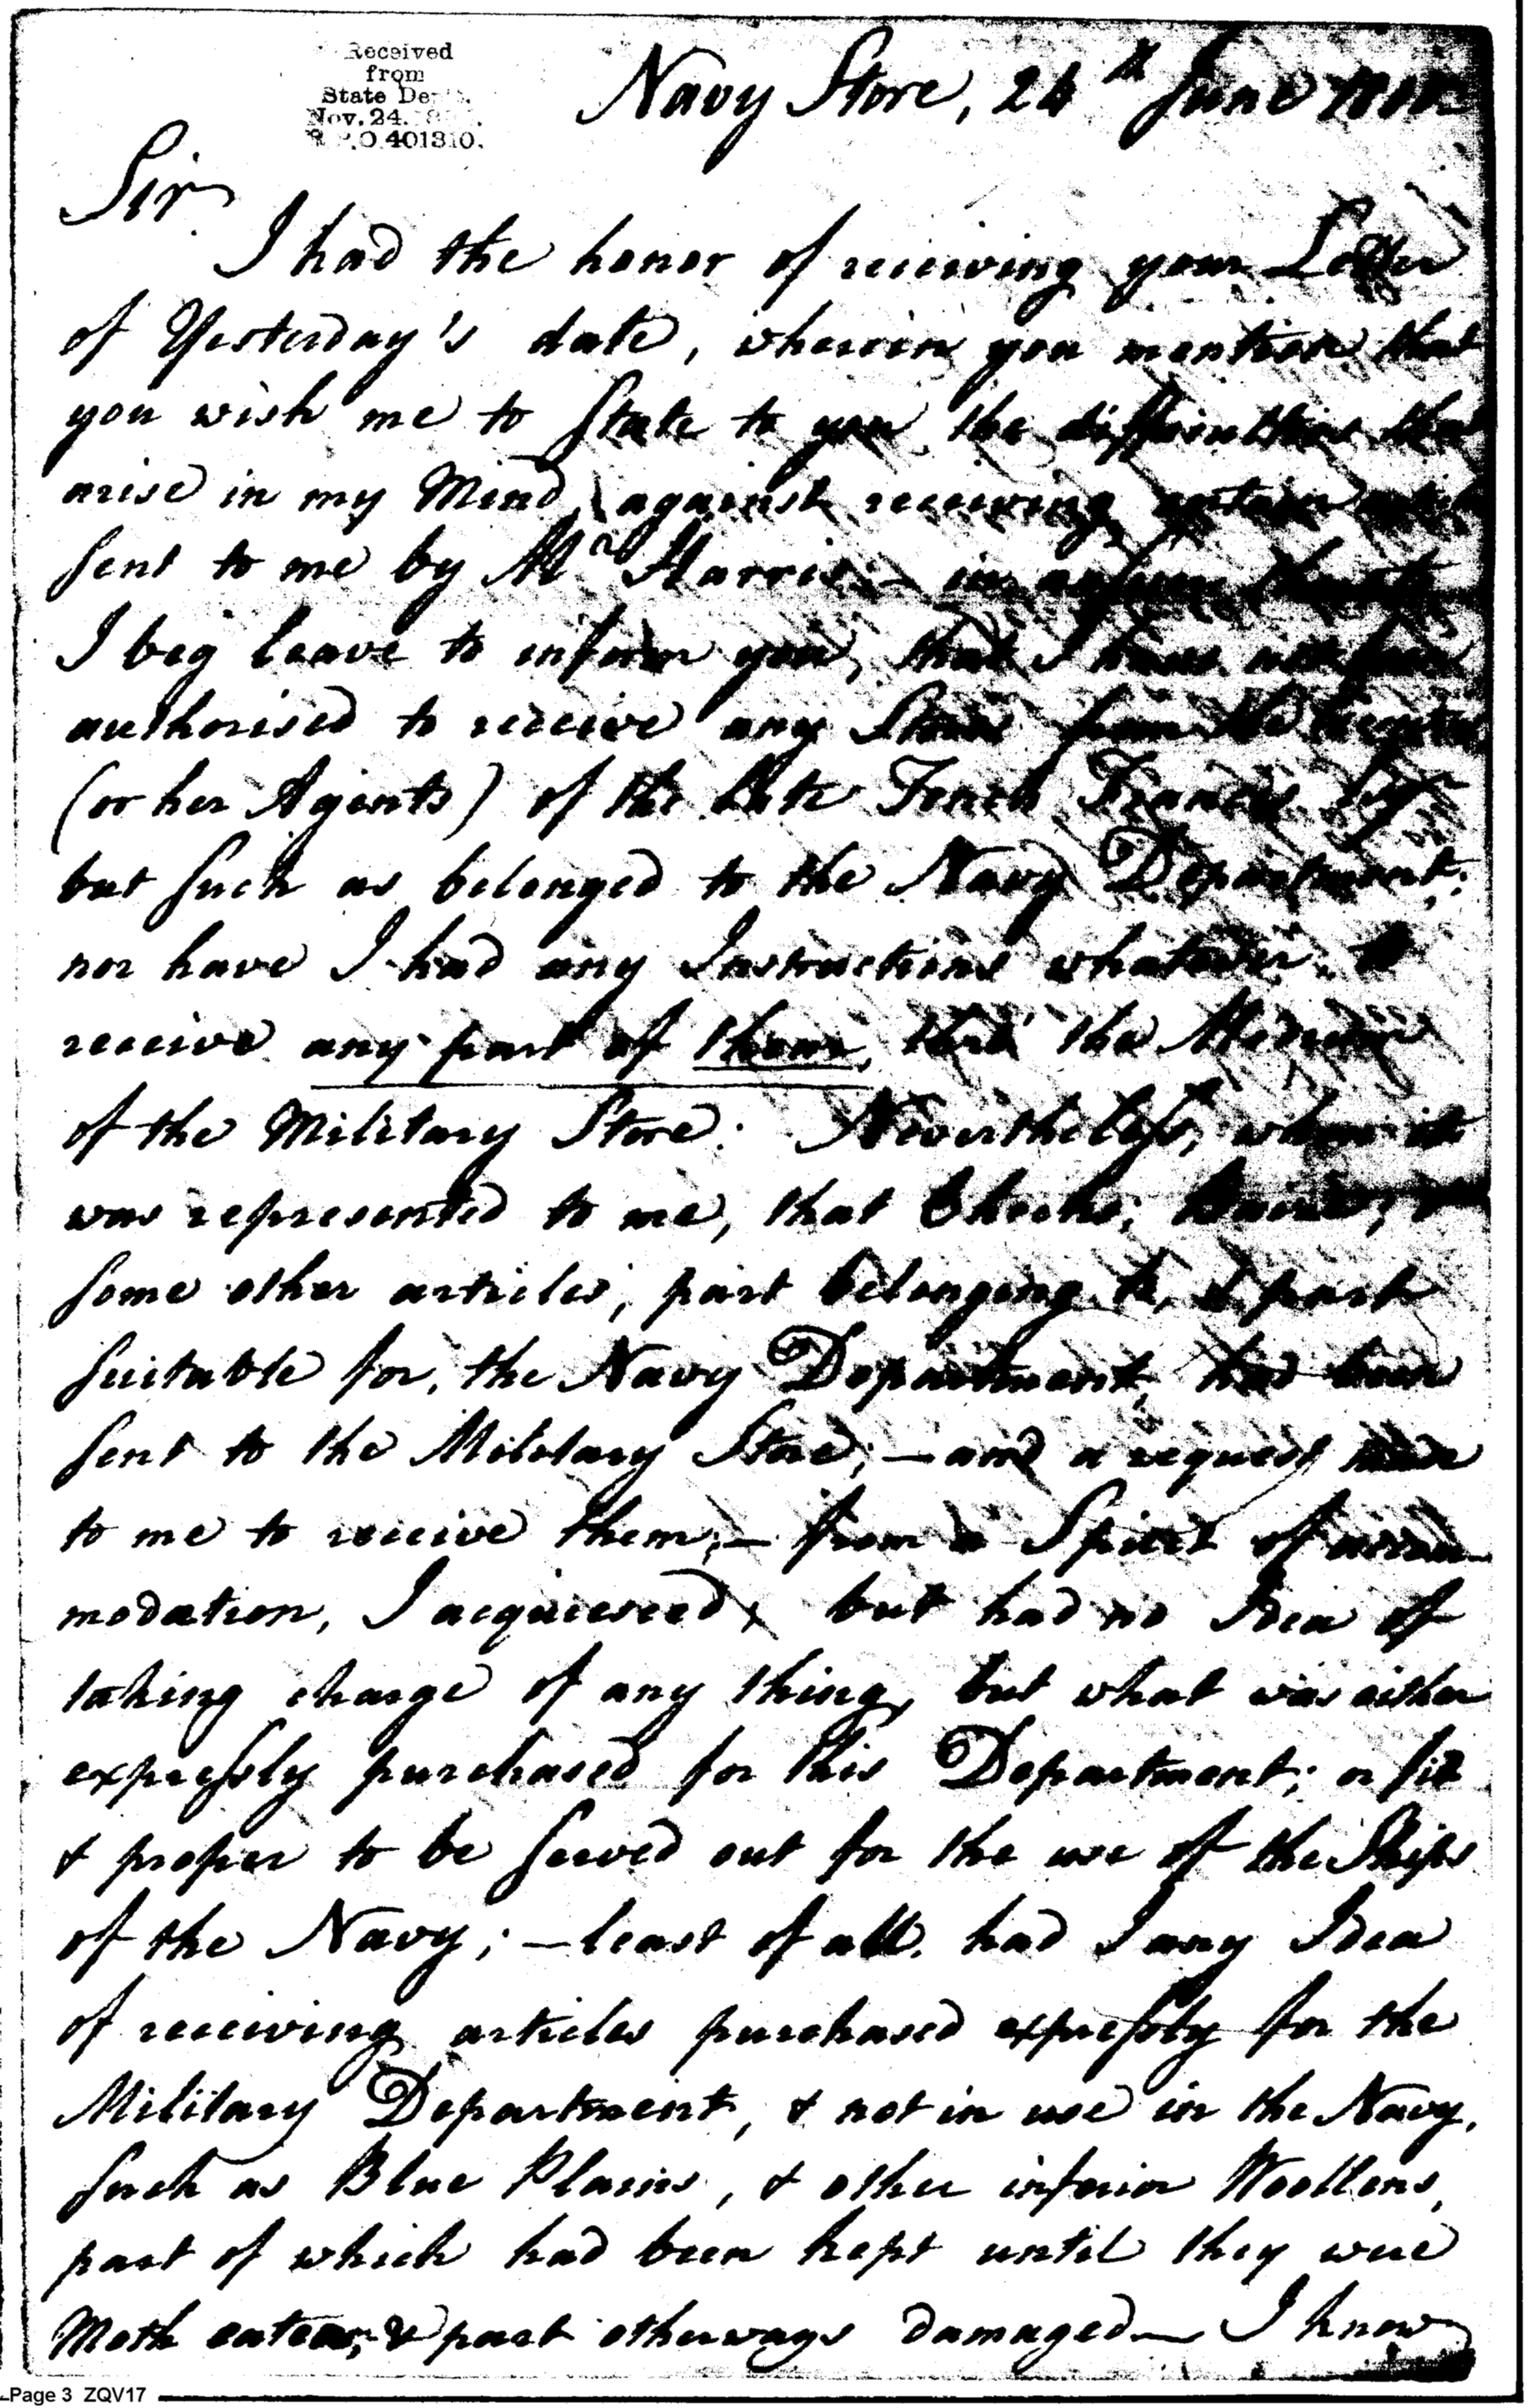 Received
from
State De
Nov. 24.
R.P.O. 401310.
Navy Store, 24th June
Sir
I had the honor of receiving your Letter
of Yesterday's date, wherein you mention that
you wish me to State to you the difficulties that
arise in my Mind, against receiving certain
sent to me by Mr Harris; – in answer thereto
I beg leave to inform you, that I have not been
authorised to receive any Stores from the
(or her Agents) of the late Tench Francis
but such as belonged to the Navy Department;
nor have I had any Instructions whatever to
receive any part of them, thro' the Medium
of the Military Store: Nevertheless, when it
was represented to me, that Checks;
some other articles, part belonging to, & part
suitable for, the Navy Department, had been
sent to the Military Store; – and a request made
to me to receive them; – from a Spirit of accom-
modation, I acquiesced; but had no Idea of
taking charge of any thing, but what was either
expressly purchased for this Department; or fit
& proper to be served out for the use of the Ships
of the Navy; – least of all, had I any Idea
of receiving articles purchased expressly for the
Military Department, & not in use in the Navy,
such as Blue Plains, & other inferior Woollens,
part of which had been kept until they were
Moth eaten, & part otherways damaged – I know
Page 3 ZQV17